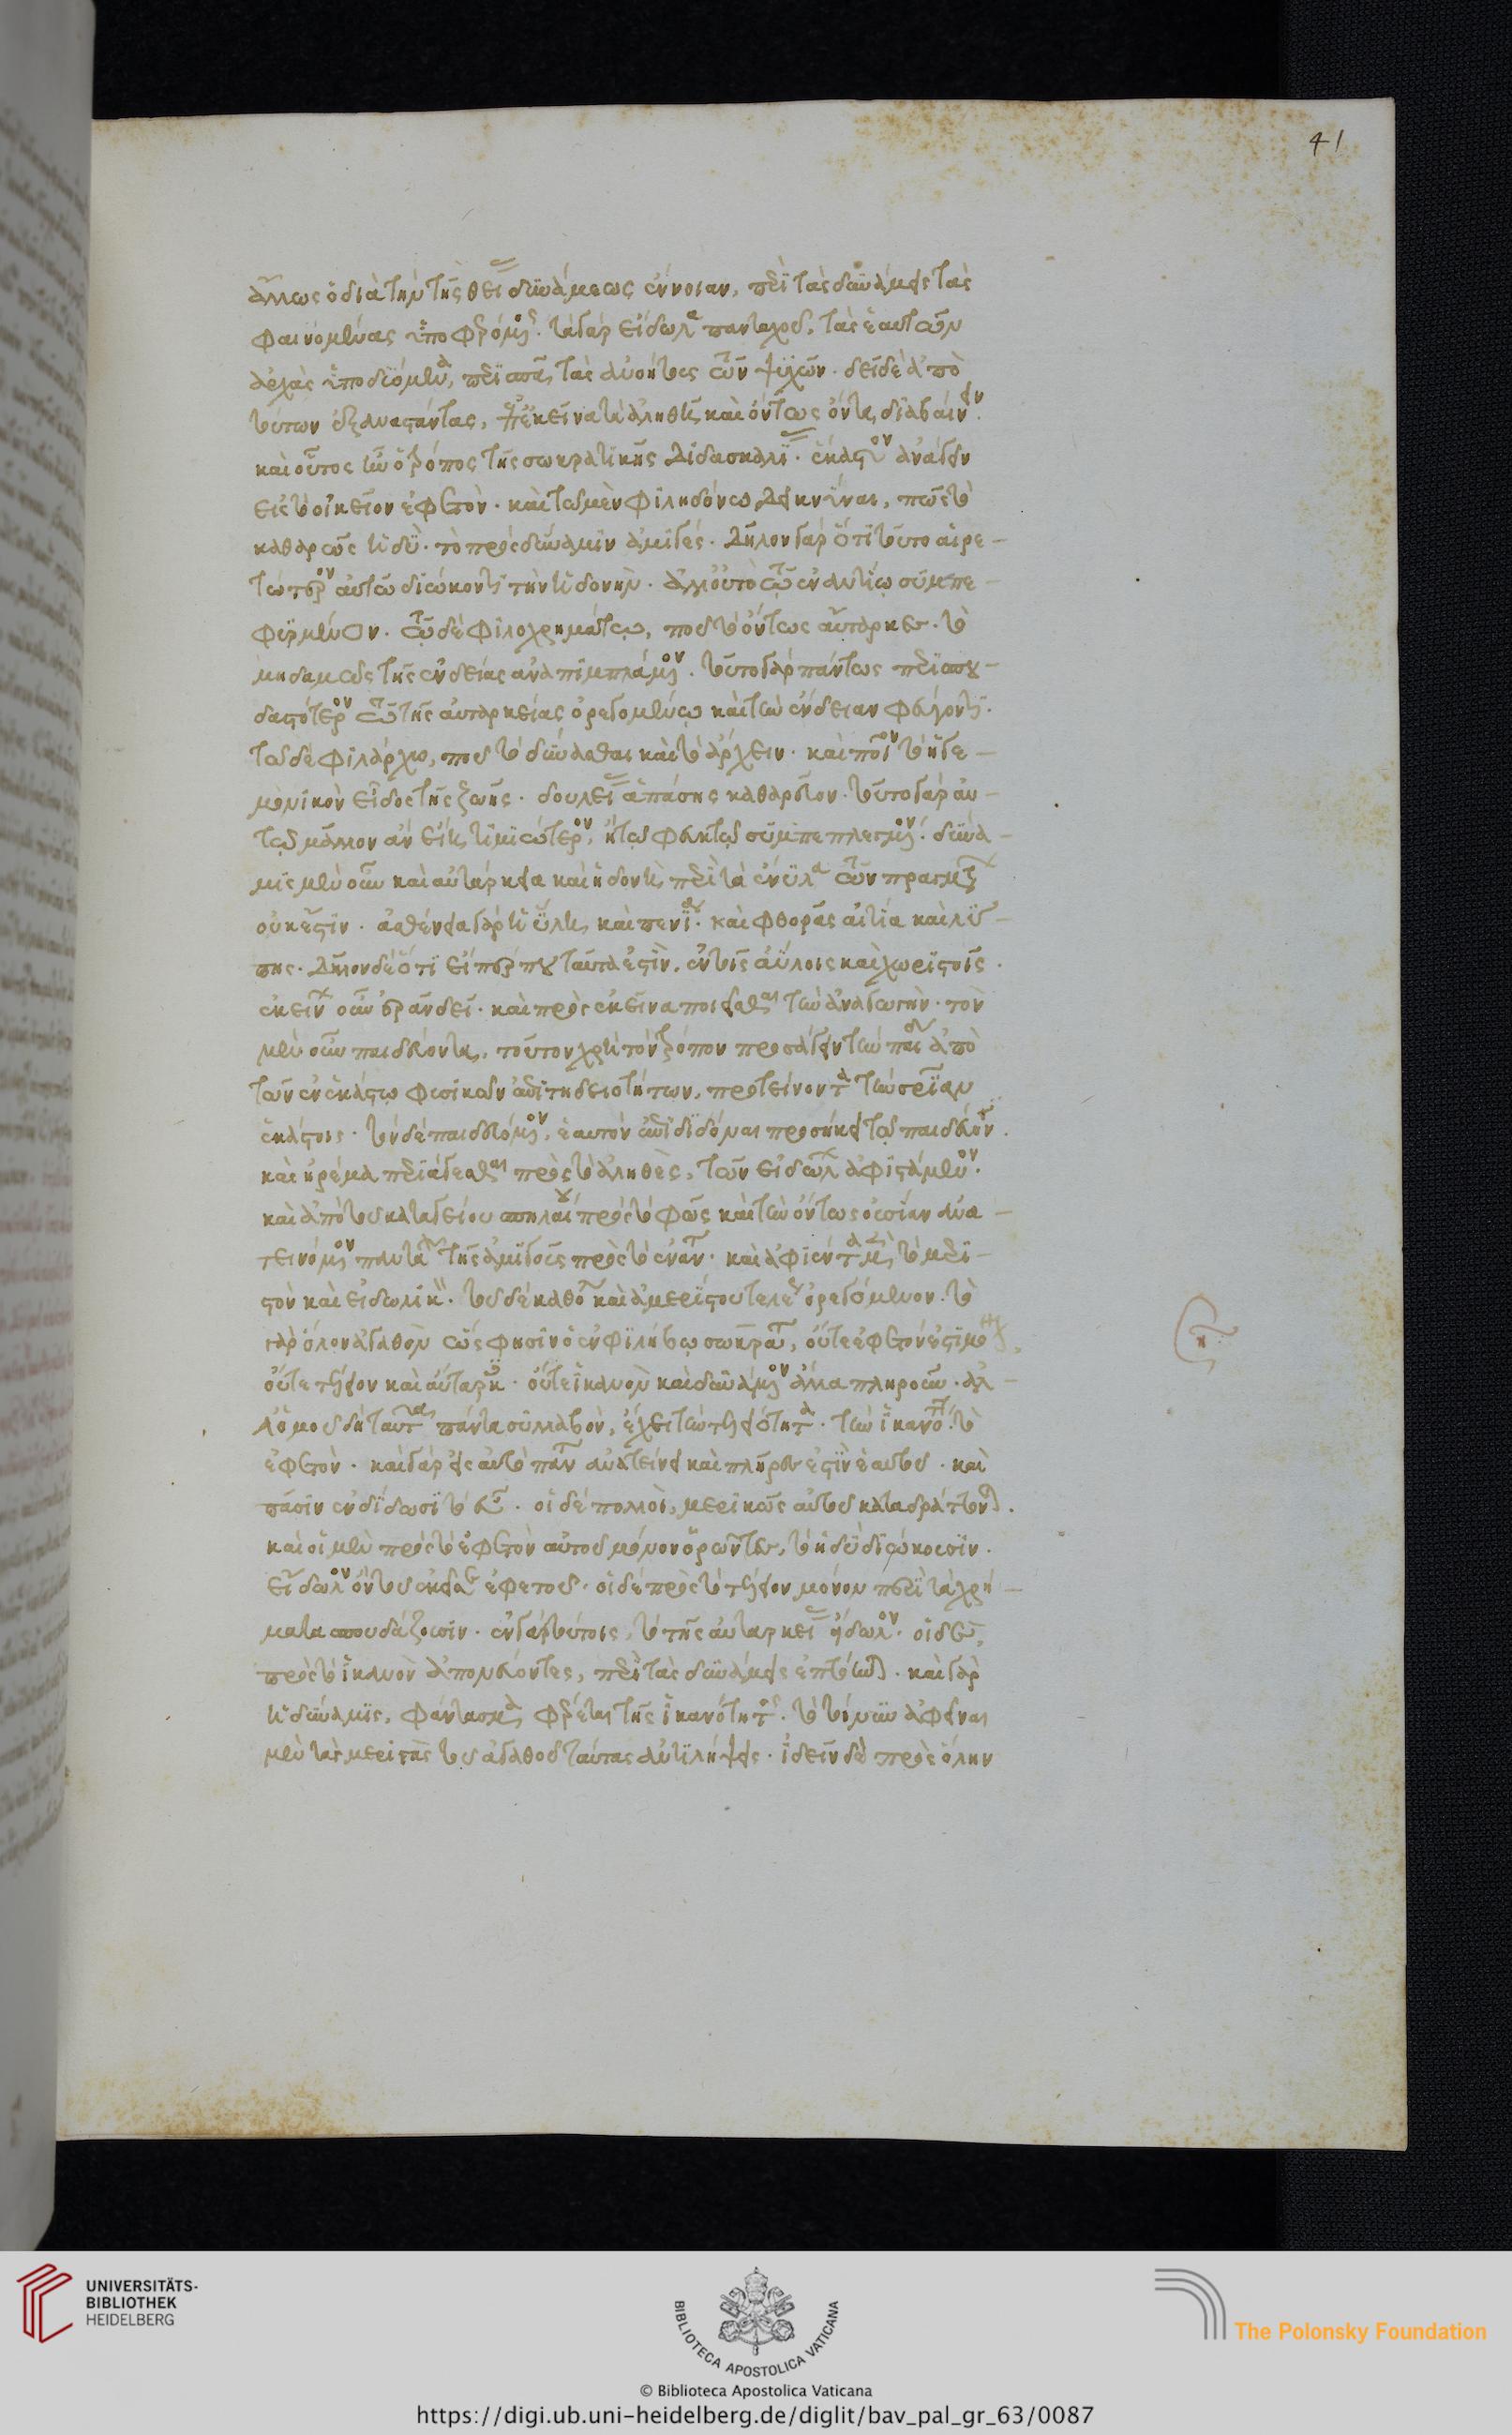 41
ἄλλως ὁ διὰ τὴν τῆς θείας δυνάμεως ἔννοιαν, περὶ τὰς δυνάμεις τὰς
φαινομένας ὑποφερόμενος. τὰ γὰρ εἴδωλα πανταχοῦ, τὰς ἑαυτῶν
ἀρχὰς ὑποδυόμενα, περισπᾶ τὰς ἀνοήτους τῶν ψυχῶν. δεῖ δὲ ἀπὸ
τούτων ἐξαναστάντας, ἐπ' ἐκεῖνα τὰ ἀληθῆ καὶ ὄντως ὄντα διαβαίνειν.
καὶ οὗτος ἦν ὁ τρόπος τῆς σωκρατικῆς διδασκαλίας. ἕκαστον ἀνάγειν
εἰς τὸ οἰκεῖον ἐφετὸν. καὶ τῷ μὲν φιληδόνῳ δεικνύναι, πῶς τὸ
καθαρῶς ἡδὺ. τὸ πρὸς δύναμιν ἀμιγές. δῆλον γὰρ ὅτι τοῦτο αἱρε-
τώτερον αὐτῷ διώκοντι τὴν ἡδονὴν. ἀλλ' οὐ τὸ τῷ ἐναντίῳ συμπε-
φυρμένον. τῷ δὲ φιλοχρημάτῳ, ποῦ τὸ ὄντως αὔταρκες. τὸ
μηδαμῶς τῆς ἐνδείας ἀναπιμπλάμενον. τοῦτο γὰρ πάντως περισπου-
δαστότερον τῷ τῆς αὐταρκείας ὀρεγομένῳ καὶ τὴν ἔνδειαν φεύγοντι.
τῷ δὲ φιλάρχῳ, ποῦ τὸ δύνασθαι καὶ τὸ ἄρχειν. καὶ ποῖον τὸ ἡγε-
μονικὸν εἶδος τῆς ζωῆς. δουλείας ἁπάσης καθαρεῦον. τοῦτο γὰρ αὐ-
τῷ μᾶλλον ἂν εἴη τιμιώτερον, ἢ τῷ φευκτῷ συμπεπλεγμένον. δύνα-
μις μὲν οὖν καὶ αὐτάρκεια καὶ ἡδονὴ, περὶ τὰ ἔνυλα τῶν πραγμάτων
οὐκ ἔστιν. ἀσθένεια γὰρ ἡ ὕλη, καὶ πενία. καὶ φθορᾶς αἰτία καὶ λύ-
πης. δῆλον δὲ ὅτι εἴπερ που ταῦτα ἐστὶν, ἐν τοῖς ἀύλοις καὶ χωριστοῖς.
ἐκείνων οὖν ἐρᾶν δεῖ. καὶ πρὸς ἐκεῖνα ποιεῖσθαι τὴν ἀναγωγὴν. τὸν
μὲν οὖν παιδεύοντα, τοῦτον χρὴ τὸν τρόπον προσάγειν τὴν ἀπὸ
τῶν ἐν ἑκάστῳ φυσικῶν ἐπιτηδειοτήτων, προτείνοντα τὴν σωτηρίαν
ἑκάστοις. τὸν δὲ παιδευόμενον, ἑαυτὸν ἐπιδιδόναι προσήκει τῷ παιδεύοντι.
καὶ ἠρέμα περιάγεσθαι πρὸς τὸ ἀληθὲς, τῶν εἰδώλων ἀφιστάμενον.
καὶ ἀπὸ τοῦ καταγείου σπηλαίου πρὸς τὸ φῶς καὶ τὴν ὄντως οὐσίαν ἀνα-
τεινόμενον τῆς πρὸς τὸ καὶ ἀφιέντα μὲν τὸ μερι-
στὸν καὶ εἰδωλικὸν. τοῦ δὲ καθόλου καὶ ἀμερίστου τέλους ὀρεγόμενον. τὸ
γὰρ ὅλον ἀγαθὸν ὥς φησιν ὁ ἐν φιλήβῳ σωκράτης, οὔτε ἐφετόν ἐστι μόνον
οὔτε τέλειον καὶ αὔταρκες. οὔτε ἱκανὸν καὶ δυνάμενον ἄλλα πληροῦν. ἀλ-
λ' ὁμοῦ δὴ ταῦτα πάντα συλλαβὸν, ἔχει τὴν τελειότητα. τὴν ἱκανότητα. τὸ
ἐφετὸν. καὶ γὰρ εἰς αὐτὸ πάντα ἀνατείνει καὶ πλῆρές ἐστὶν ἑαυτοῦ. καὶ
πᾶσιν ἐνδίδωσι τὸ εὖ. οἱ δὲ πολλοὶ, μερικῶς αὐτοῦ καταδράττονται.
καὶ οἱ μὲν πρὸς τὸ ἐφετὸν αὐτοῦ μόνον ὁρῶντες, τὸ ἡδὺ διώκουσιν.
εἴδωλον ὂν τοῦ ἐκεῖσε ἐφετοῦ. οἱ δὲ πρὸς τὸ τέλειον μόνον περὶ τὰ χρή-
ματα σπουδάζουσιν. ἐν γὰρ τούτοις, τὸ τῆς αὐταρκείας εἴδωλον. οἱ δὲ
πρὸς τὸ ἱκανὸν ἀπονεύοντες, περὶ τὰς δυνάμεις ἐπτόηνται. καὶ γὰρ
ἡ δύναμις, φάντασμα φέρεται τῆς ἱκανότητος. τὸ τοίνυν ἀφεῖναι
μὲν τὰς μεριστὰς τοῦ ἀγαθοῦ ταύτας ἀντιλήψεις. ἰδεῖν δὲ πρὸς ὅλην
UNIVERSITÄTS-
BIBLIOTHEK
HEIDELBERG
BIBLIOTECA APOSTOLICA VATICANA
The Polonsky Foundation
© Biblioteca Apostolica Vaticana
https://digi.ub.uni-heidelberg.de/diglit/bav_pal_gr_63/0087